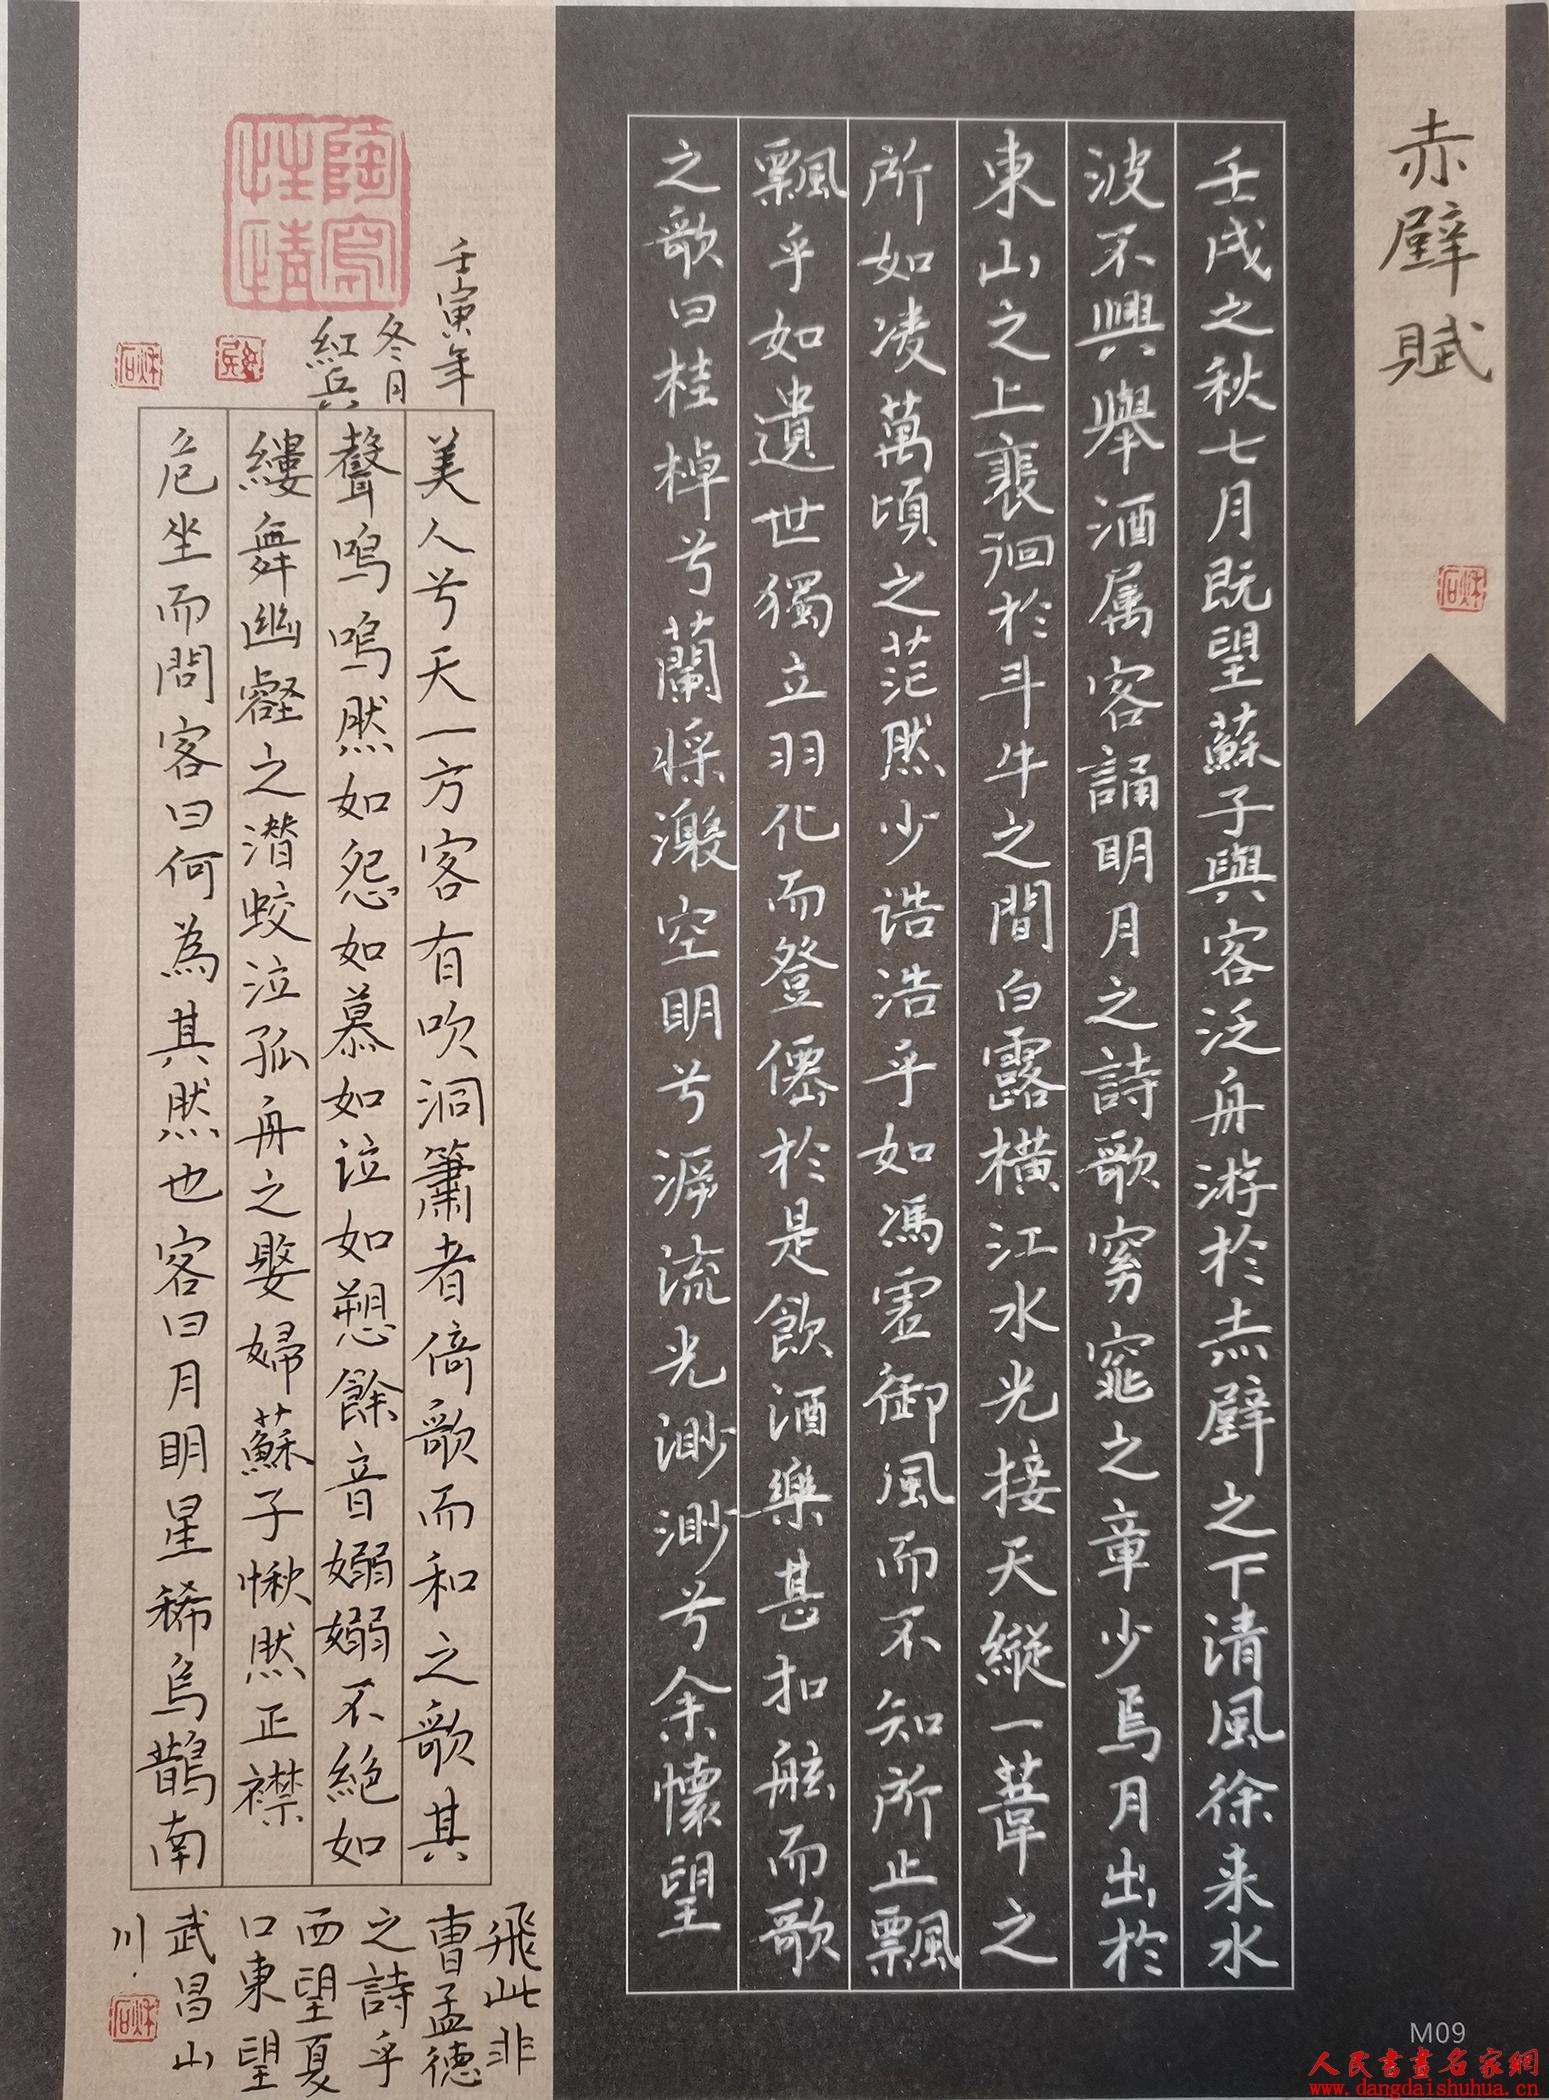 赤壁賦
壬戌之秋七月既望蘇子與客泛舟游於赤壁之下清風徐来水
波不興舉酒属客誦明月之詩歌窈窕之章少焉月出於
東山之上裵徊於斗牛之間白露橫江水光接天縱一葦之
所如凌萬頃之茫然少浩浩乎如馮虛御風而不知所止飄
飄乎如遺世獨立羽化而登僊於是飲酒樂甚扣舷而歌
之歌曰桂棹兮蘭槳激空明兮溯流光渺渺兮余懷望
美人兮天一方客有吹洞簫者倚歌而和之歌其
聲嗚嗚然如怨如慕如泣如愬餘音嫋嫋不絕如
縷舞幽壑之潜蛟泣孤舟之嫠婦蘇子愀然正襟
危坐而問客曰何為其然也客曰月明星稀烏鵲南
飛此非
曹孟德
之詩乎
西望夏
口東望
武昌山
川
壬寅年
冬月
紅兵
陶寫
性情
M09
人民書畫名家網
www.dangdaishuhua.cn